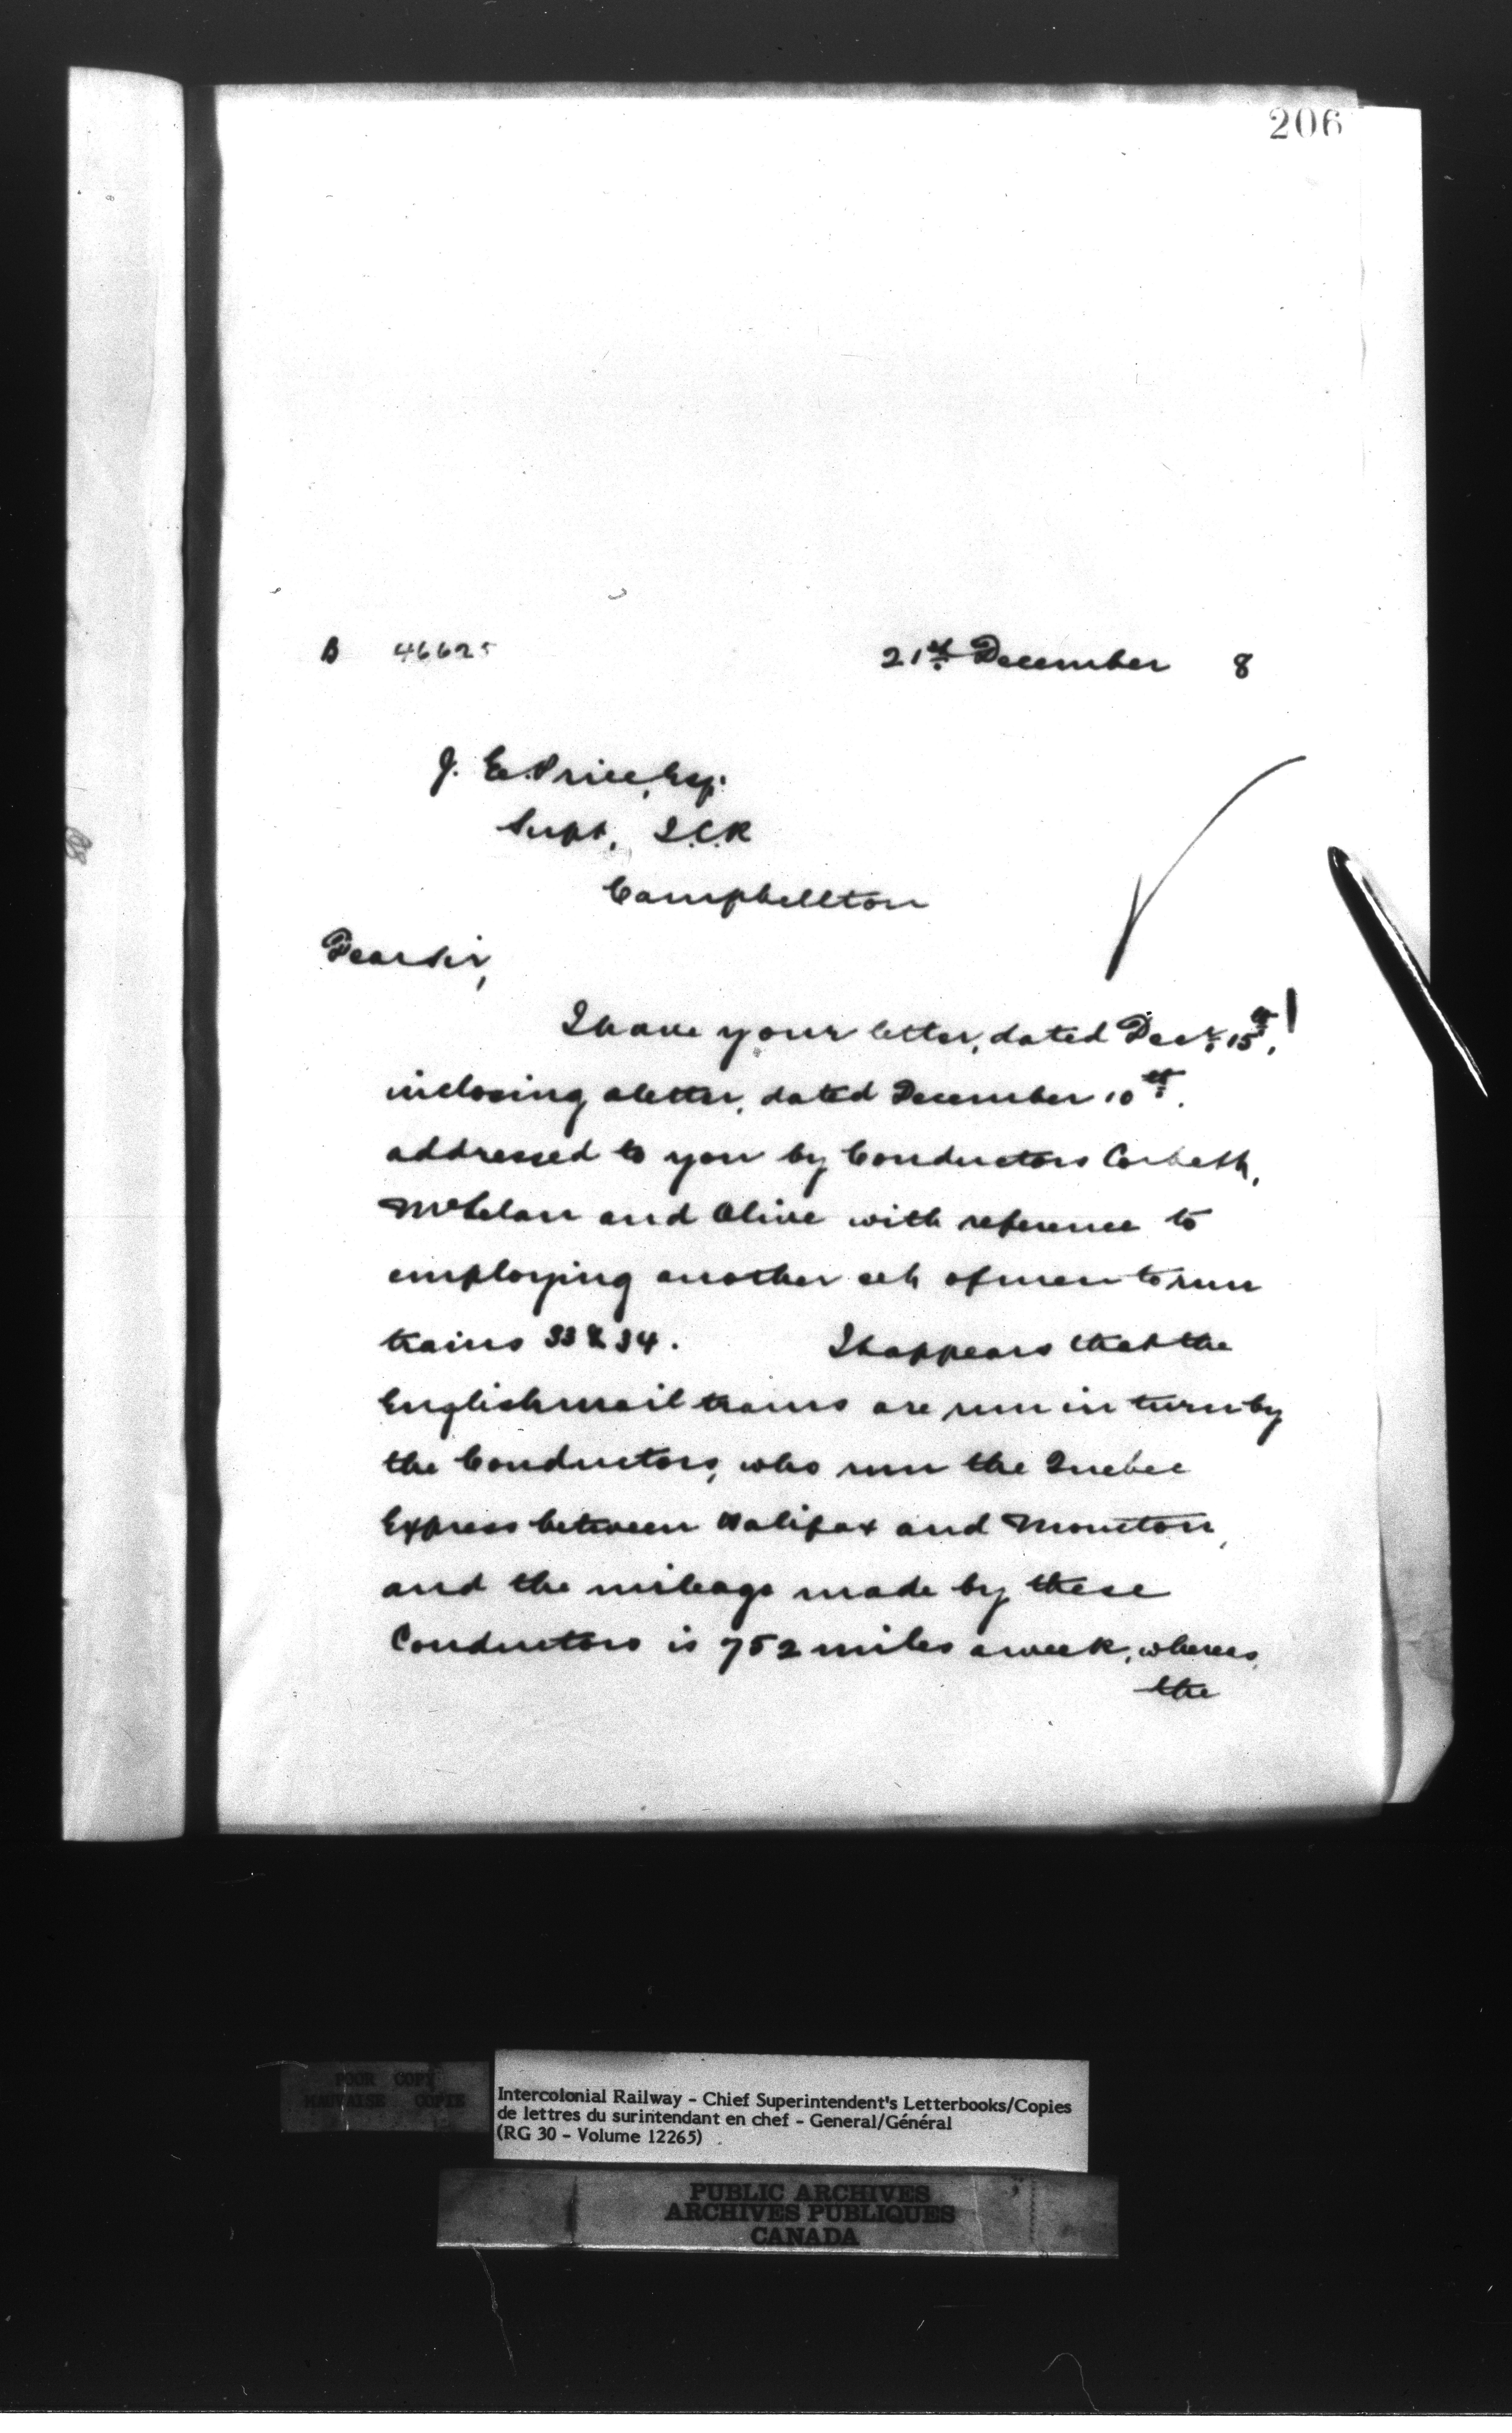 206
B 46625
21st December 8
J. E. Price, Esq.
Supt, I.C.R
Campbellton
Dear Sir,
I have your letter, dated Decr. 15th,
inclosing a letter, dated December 10th.
addressed to you by Conductors Corbett,
McLelan and Olive with reference to
employing another set of men to run
trains 33 & 34. It appears that the
English mail trains are run in turn by
the Conductors, who run the Quebec
Express between Halifax and Moncton,
and the mileage made by these
Conductors is 752 miles a week, whereas
the
POOR COPY
MAUVAISE COPIE
Intercolonial Railway - Chief Superintendent's Letterbooks/Copies
de lettres du surintendant en chef - General/Général
(RG 30 - Volume 12265)
PUBLIC ARCHIVES
ARCHIVES PUBLIQUES
CANADA